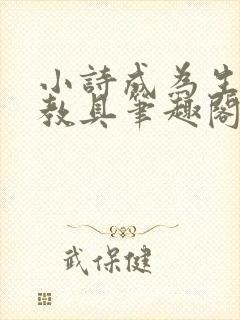 小詩成為生
教具筆趣閣
武保健